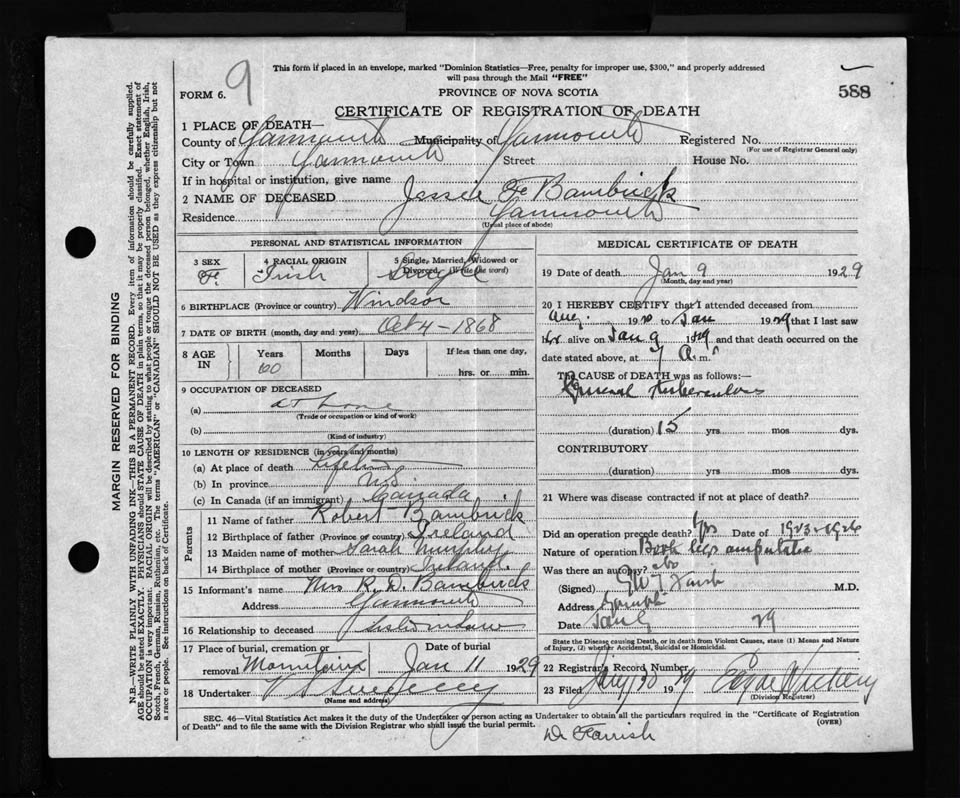 9
This form if placed in an envelope, marked "Dominion Statistics—Free, penalty for improper use, $300," and properly addressed
will pass through the Mail "FREE"
FORM 6.
PROVINCE OF NOVA SCOTIA
588
CERTIFICATE OF REGISTRATION OF DEATH
1 PLACE OF DEATH—
County of Yarmouth Municipality of Yarmouth Registered No.
(For use of Registrar General only)
City or Town Yarmouth Street House No.
If in hospital or institution, give name
2 NAME OF DECEASED Jessie F Bambrick
Residence Yarmouth
(Usual place of abode)
PERSONAL AND STATISTICAL INFORMATION
3 SEX 4 RACIAL ORIGIN 5 Single, Married, Widowed or Divorced, (Write the word)
F. Irish Single
6 BIRTHPLACE (Province or country) Windsor
7 DATE OF BIRTH (month, day and year) Oct 4 - 1868
8 AGE IN Years Months Days If less than one day,
60 hrs. or min.
9 OCCUPATION OF DECEASED
(a) at home
(Trade or occupation or kind of work)
(b)
(Kind of industry)
10 LENGTH OF RESIDENCE (in years and months)
(a) At place of death Lifetime
(b) In province NS
(c) In Canada (if an immigrant) Canada
Parents
11 Name of father Robert Bambrick
12 Birthplace of father (Province or country) Ireland
13 Maiden name of mother Sarah Murphy
14 Birthplace of mother (Province or country) Ireland
15 Informant's name Mrs R. D. Bambrick
Address Yarmouth
16 Relationship to deceased Sister in Law
17 Place of burial, cremation or removal Mountain Date of burial Jan 11 1929
18 Undertaker V S Sweeney
(Name and address)
MEDICAL CERTIFICATE OF DEATH
19 Date of death Jan 9 1929
(Month, day and year)
20 I HEREBY CERTIFY that I attended deceased from
Aug. 19 to Jan 1929 that I last saw
her alive on Jan 9 1929 and that death occurred on the
date stated above, at 7 A. m.
The CAUSE OF DEATH was as follows:—
General Tuberculosis
(duration) 15 yrs mos dys.
CONTRIBUTORY
(duration) yrs mos dys.
21 Where was disease contracted if not at place of death?
Did an operation precede death? Yes Date of 1923-1926
Nature of operation Both legs amputated
Was there an autopsy? No
(Signed) M.D.
Address Yarmouth
Date Jan 29
State the Disease causing Death, or in death from Violent Causes, state (1) Means and Nature
of Injury, (2) whether Accidental, Suicidal or Homicidal.
22 Registrar's Record Number
23 Filed 19 29
(Division Registrar)
SEC. 46—Vital Statistics Act makes it the duty of the Undertaker or person acting as Undertaker to obtain all the particulars required in the "Certificate of Registration
of Death" and to file the same with the Division Registrar who shall issue the burial permit.
(OVER)
Dr Farish
MARGIN RESERVED FOR BINDING
N.B.—WRITE PLAINLY WITH UNFADING INK—THIS IS A PERMANENT RECORD. Every item of information should be carefully supplied.
AGE should be stated EXACTLY. PHYSICIANS should STATE CAUSE OF DEATH in plain terms, so that it may be properly classified. Exact statement of
OCCUPATION is very important. RACIAL ORIGIN will be described by stating to what people or tongue the deceased person belonged, whether English, Irish,
Scotch, French, German, Russian, Ruthenian, etc. The terms "AMERICAN" or "CANADIAN" SHOULD NOT BE USED as they express citizenship but not
a race or people. See instructions on back of Certificate.